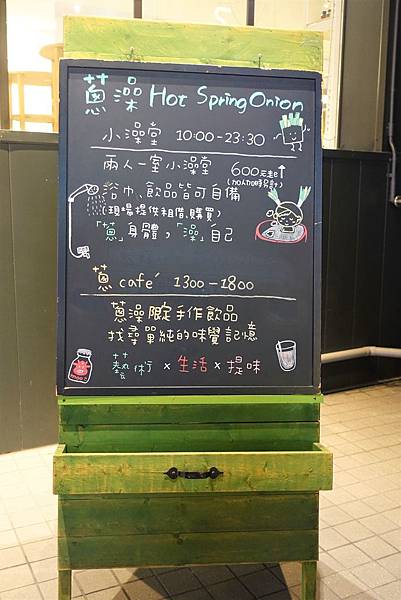 蔥澡 Hot Spring Onion
小澡堂 10:00-23:30
兩人一室小澡堂 600元起↑
浴巾、飲品皆可自備
(現場提供租借、購買)
「蔥」身體,「澡」自己
蔥 café 1300-1800
蔥澡限定手作飲品
找尋單純的味覺記憶
藝術 × 生活 × 提味